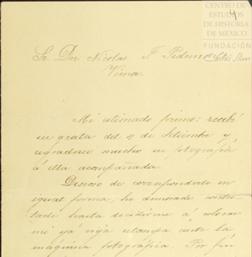 CENTRO DE
ESTUDIOS
DE HISTORIA
DE MEXICO
FUNDACIÓN
Sr. Don Nicolas F.
Mi estimado primo: recibí
su grata del 9 de Setiembre y
agradezco mucho su fotografía
á ella acompañada.
Deseoso de corresponderle en
igual forma, he demorado contes-
tarle hasta decidirme á colocar
mi ya vieja estampa ante la
máquina fotográfica. Por fin